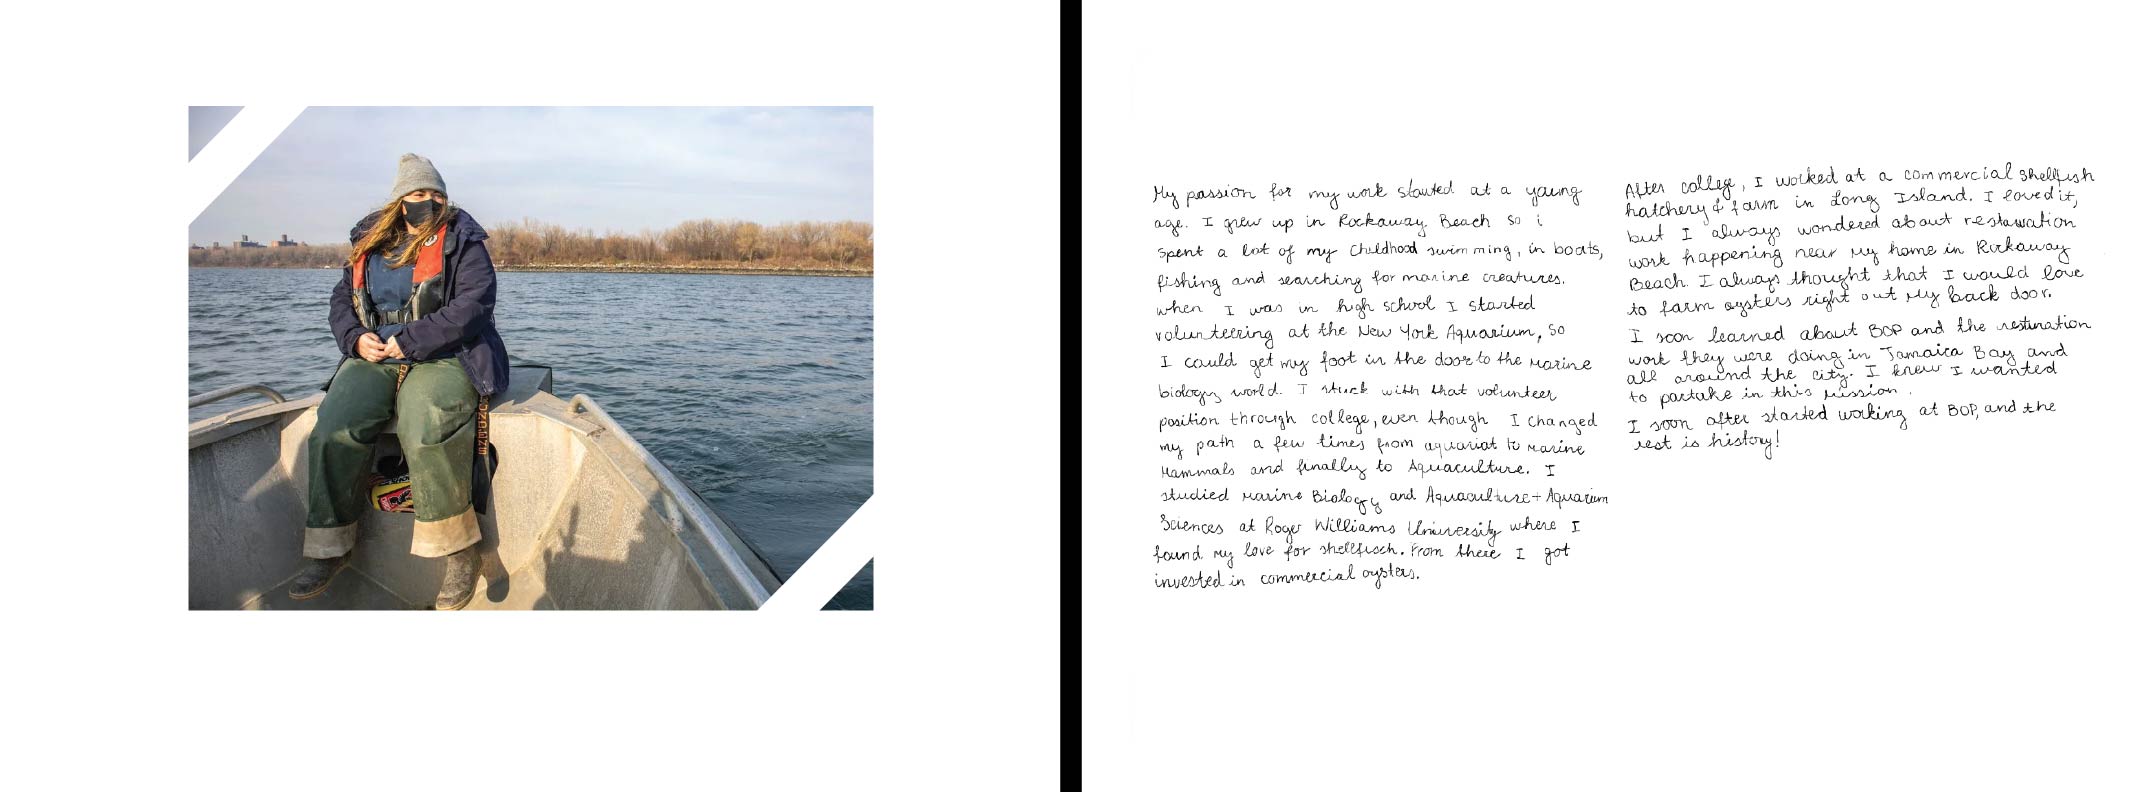 My passion for my work started at a young
age. I grew up in Rockaway Beach so i
spent a lot of my childhood swimming, in boats,
fishing and searching for marine creatures.
when I was in high school I started
volunteering at the New York Aquarium, so
I could get my foot in the door to the marine
biology world. I stuck with that volunteer
position through college, even though I changed
my path a few times from aquarist to marine
mammals and finally to Aquaculture. I
studied marine Biology and Aquaculture + Aquarium
Sciences at Roger Williams University where I
found my love for shellfisch. From there I got
invested in commercial oysters.
After college, I worked at a commercial shellfish
hatchery & farm in Long Island. I loved it,
but I always wondered about restoration
work happening near my home in Rockaway
Beach. I always thought that I would love
to farm oysters right out my back door.
I soon learned about BOP and the restoration
work they were doing in Jamaica Bay and
all around the city. I knew I wanted
to partake in this mission.
I soon after started working at BOP, and the
rest is history!